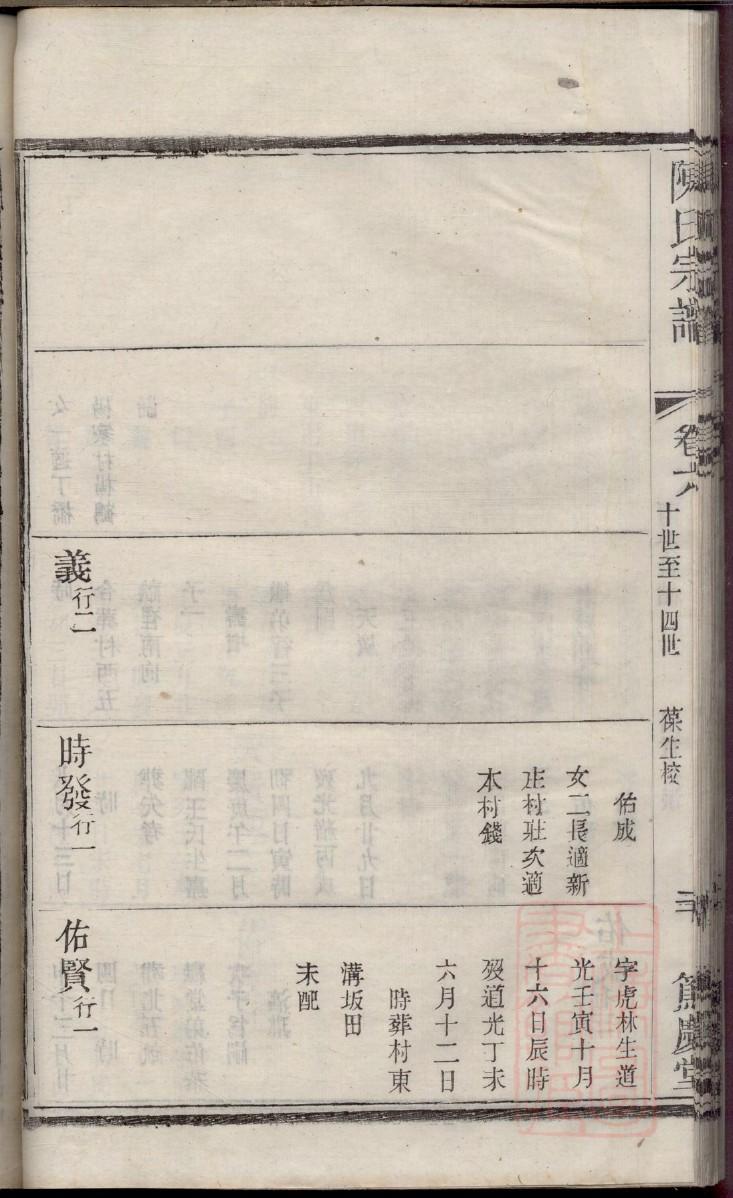 陳氏宗譜
卷六
十世至十四世
葆生校
篤慶堂
義行二
佑成
女二長適新
庄村莊次適
本村錢
時發行一
字虎林生道
光壬寅十月
十六日辰時
歿道光丁未
六月十二日
時葬村東
溝坂田
未配
佑賢行一